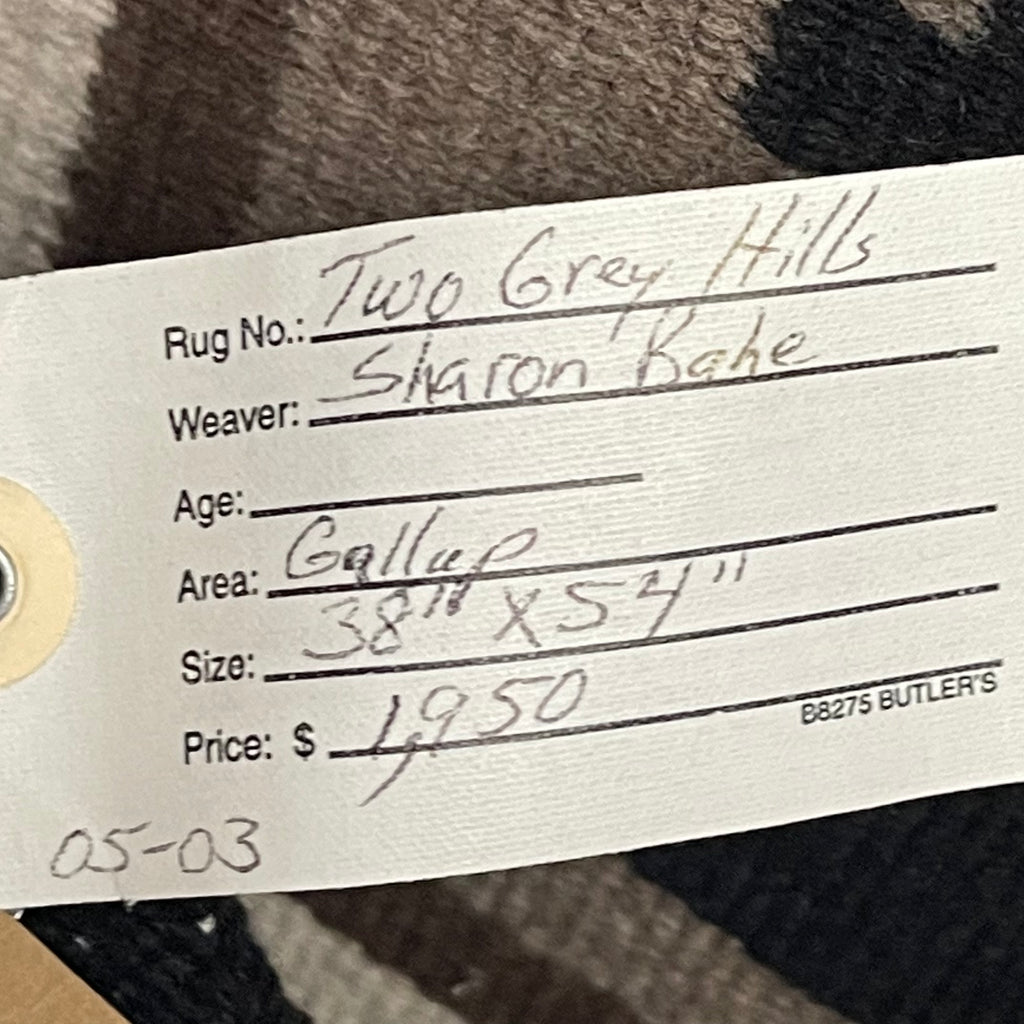 Rug No.: Two Grey Hills
Weaver: Sharon Bahe
Age:
Area: Gallup
Size: 38" x 54"
Price: $ 1,950
B8275 BUTLER'S
05-03